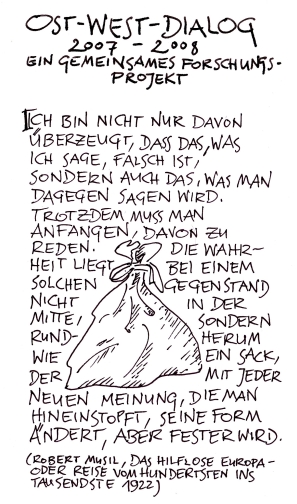 OST-WEST-DIALOG
2007 - 2008
EIN GEMEINSAMES FORSCHUNGS-
PROJEKT
ICH BIN NICHT NUR DAVON
ÜBERZEUGT, DASS DAS, WAS
ICH SAGE, FALSCH IST,
SONDERN AUCH DAS, WAS MAN
DAGEGEN SAGEN WIRD.
TROTZDEM MUSS MAN
ANFANGEN, DAVON ZU
REDEN. DIE WAHR-
HEIT LIEGT BEI EINEM
SOLCHEN GEGENSTAND
NICHT IN DER
MITTE, SONDERN
RUND- HERUM
WIE EIN SACK,
DER MIT JEDER
NEUEN MEINUNG, DIE MAN
HINEINSTOPFT, SEINE FORM
ÄNDERT, ABER FESTER WIRD.
(ROBERT MUSIL, DAS HILFLOSE EUROPA-
ODER REISE VOM HUNDERTSTEN INS
TAUSENDSTE 1922)